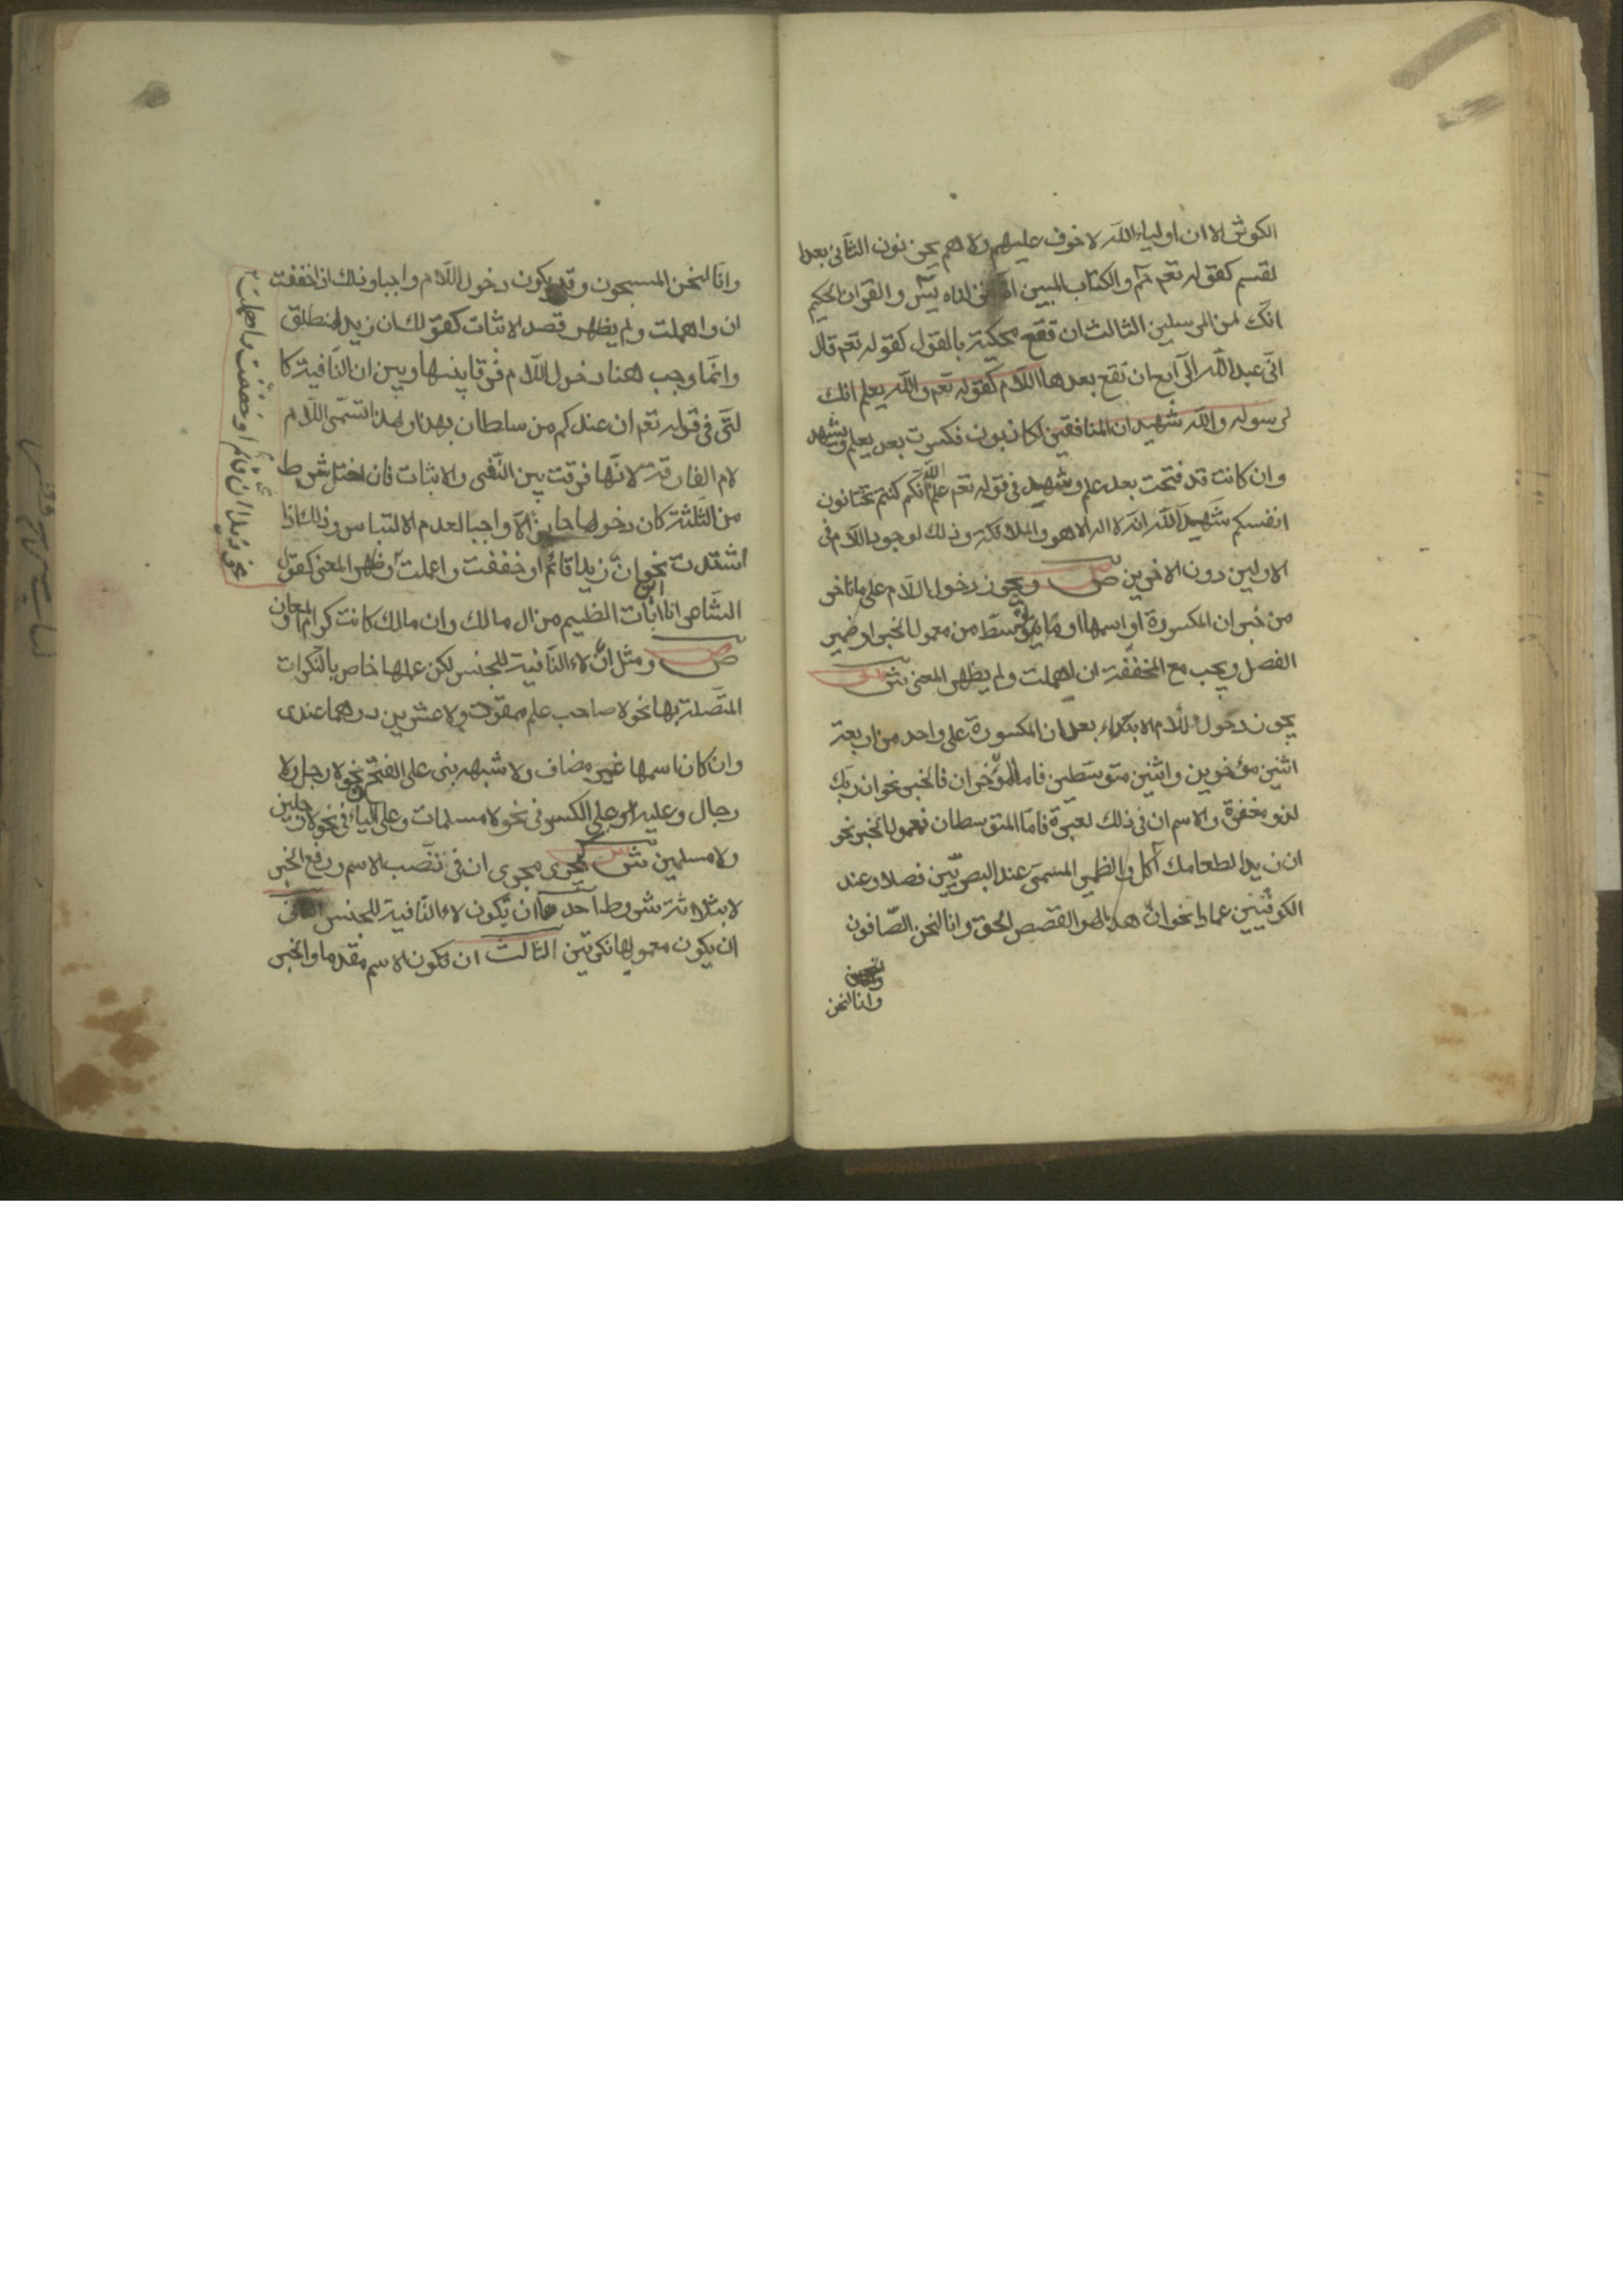 الكوثر الا ان اولياء الله لا خوف عليهم ولا هم يحزنون الثاني بعد ا
لقسم كقوله تعم حم والكتاب المبين انا انزلناه يس والقران الحكيم
انك لمن المرسلين الثالث ان تقع محكية بالقول كقوله تعم قال
اني عبد الله الرابع ان تقع بعدها اللام كقوله تعم والله يعلم انك
لرسوله والله شهيد ان المنافقين لكاذبون فكسرت بعد يعلم ويشهد
وان كانت قد فتحت بعد علم وشهد في قوله تعم علم الله انكم كنتم تختانون
انفسكم شهد الله انه لا اله الا هو والملائكة وذلك لوجود اللام في
الاولين دون الاخرين ص ويجوز دخول اللام على ما تاخر
من خبر ان المكسورة او اسمها او ما توسط من معمول الخبر او ضمير
الفصل ويجب مع المخففة ان اهملت ولم يظهر المعنى ش
يجوز دخول اللام الابتداء بعد ان المكسورة على واحد من اربعة
اثنين مؤخرين واثنين متوسطين فاما المؤخران فالخبر نحو ان ربك
لذو مغفرة والاسم ان في ذلك لعبرة فاما المتوسطان فمعمول الخبر نحو
ان زيدا لطعامك آكل والظمير المسمى عند البصريين فصلا وعند
الكوفيين عمادا نحو ان هذا لهو القصص الحق وانا لنحن الصافون
وانا لنحن
وانا لنحن المسبحون وقد يكون دخول اللام واجبا وذلك اذا خففت
ان واهملت ولم يظهر قصد الاثبات كقولك ان زيد لمنطلق
وانما وجب هنا دخول اللام فرقا بينها وبين ان النافية كا
لتى في قوله تعم ان عندكم من سلطان بهذا ولهذا تسمى اللام
لام الفارقة لانها فرقت بين النفى والاثبات فان اختل شرط
من الثلثة كان دخولها جايزا لا واجبا لعدم الالتباس وذلك اذا
اشتدت نحو ان زيدا قائم او خففت واعملت او ظهر المعنى كقول
الشاعر انا ابن ابات الظيم من ال مالك وان مالك كانت كرام المعادن
ص ومثل ان لاء النافية للجنس لكن عملها خاص بالنكرات
المتصلة بها نحو لا صاحب علم ممقوت ولا عشرين درهما عندى
وان كان اسمها غير مضاف ولا شبهه بنى على الفتح نحو لا رجل ولا
رجال وعليه او على الكسر في نحو لا مسلمات وعلى الياء في نحو لا رجلين
ولا مسلمين ش يجرى مجرى ان في تنصب الاسم ورفع الخبر
لا بثلاثة شروط احدها ان يكون لاء النافية للجنس الثانى
ان يكون معموليها نكرتين الثالث ان يكون الاسم مقدما والخبر
نحو ان زيدا قائم او خففت واهملت